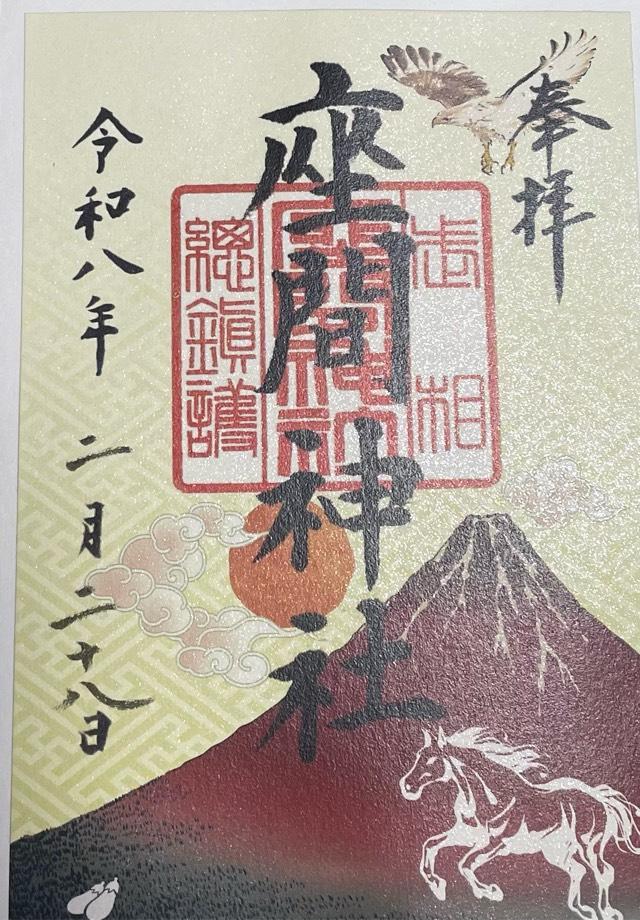 奉拝
座間神社
令和八年 二月二十八日
相
總鎮護